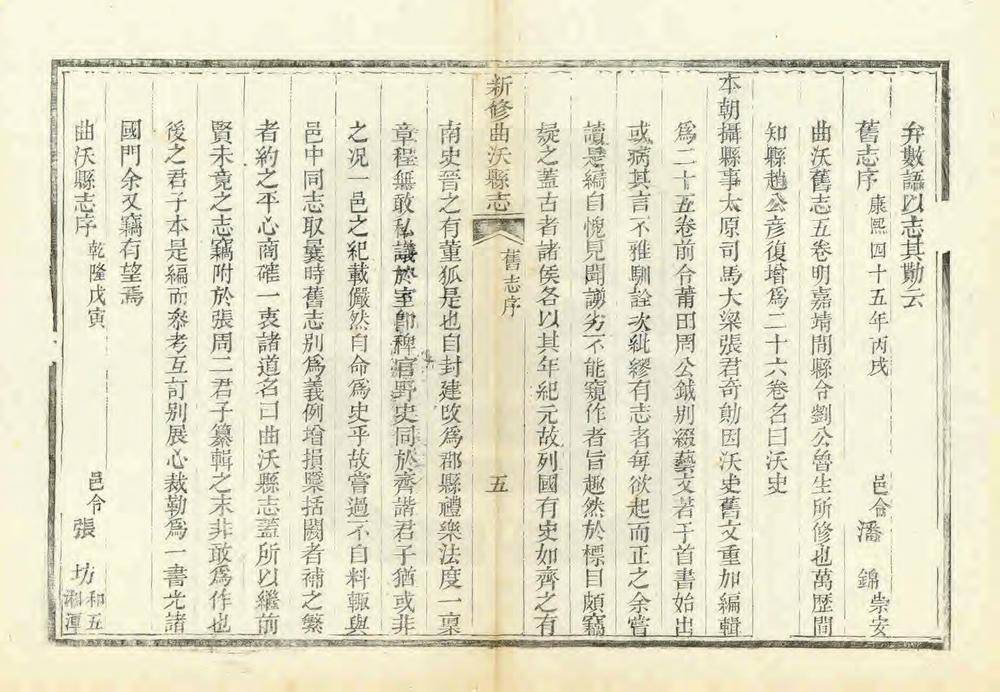 弁數語以志其勛云
舊志序 康熙四十五年丙戌 邑令 潘錦 崇安
曲沃舊志五卷明嘉靖間縣令劉公曾生所修也萬歷間
知縣趙公彥復增爲二十六卷名曰沃史
本朝攝縣事太原司馬大梁張君奇勛因沃史舊文重加編輯
爲二十五卷前令莆田周公鉞別綴藝文若干首書始出
或病其言不雅馴詮次紕繆有志者每欲起而正之余嘗
讀是編自愧見聞譾劣不能窺作者旨趣然於標目頗竊
疑之蓋古者諸侯各以其年紀元故列國有史如齊之有
新修曲沃縣志 舊志序 五
南史晉之有董狐是也自封建改爲郡縣禮樂法度一稟
章程無敢私議於室卽稗官野史同於齊諧君子猶或非
之况一邑之紀載儼然自命爲史乎故嘗過不自料輒與
邑中同志取曩時舊志別爲義例增損櫽括闕者補之繁
者約之平心商確一衷諸道名曰曲沃縣志蓋所以繼前
賢未竟之志竊附於張周二君子纂輯之末非敢爲作也
後之君子本是編而叅考互訂別展心裁勒爲一書光諸
國門余又竊有望焉
曲沃縣志序 乾隆戊寅 邑令 張坊 和五 湘潭